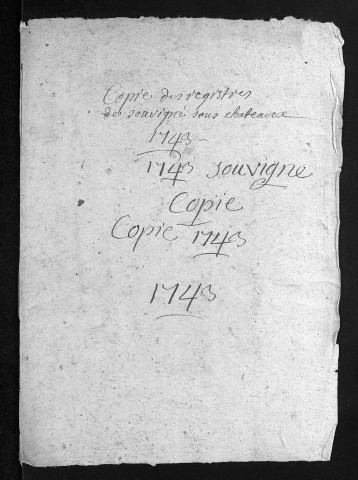 Copie des registres
de souvigné sous chateaux
1743
1743 souvigne
Copie
Copie 1743
1743